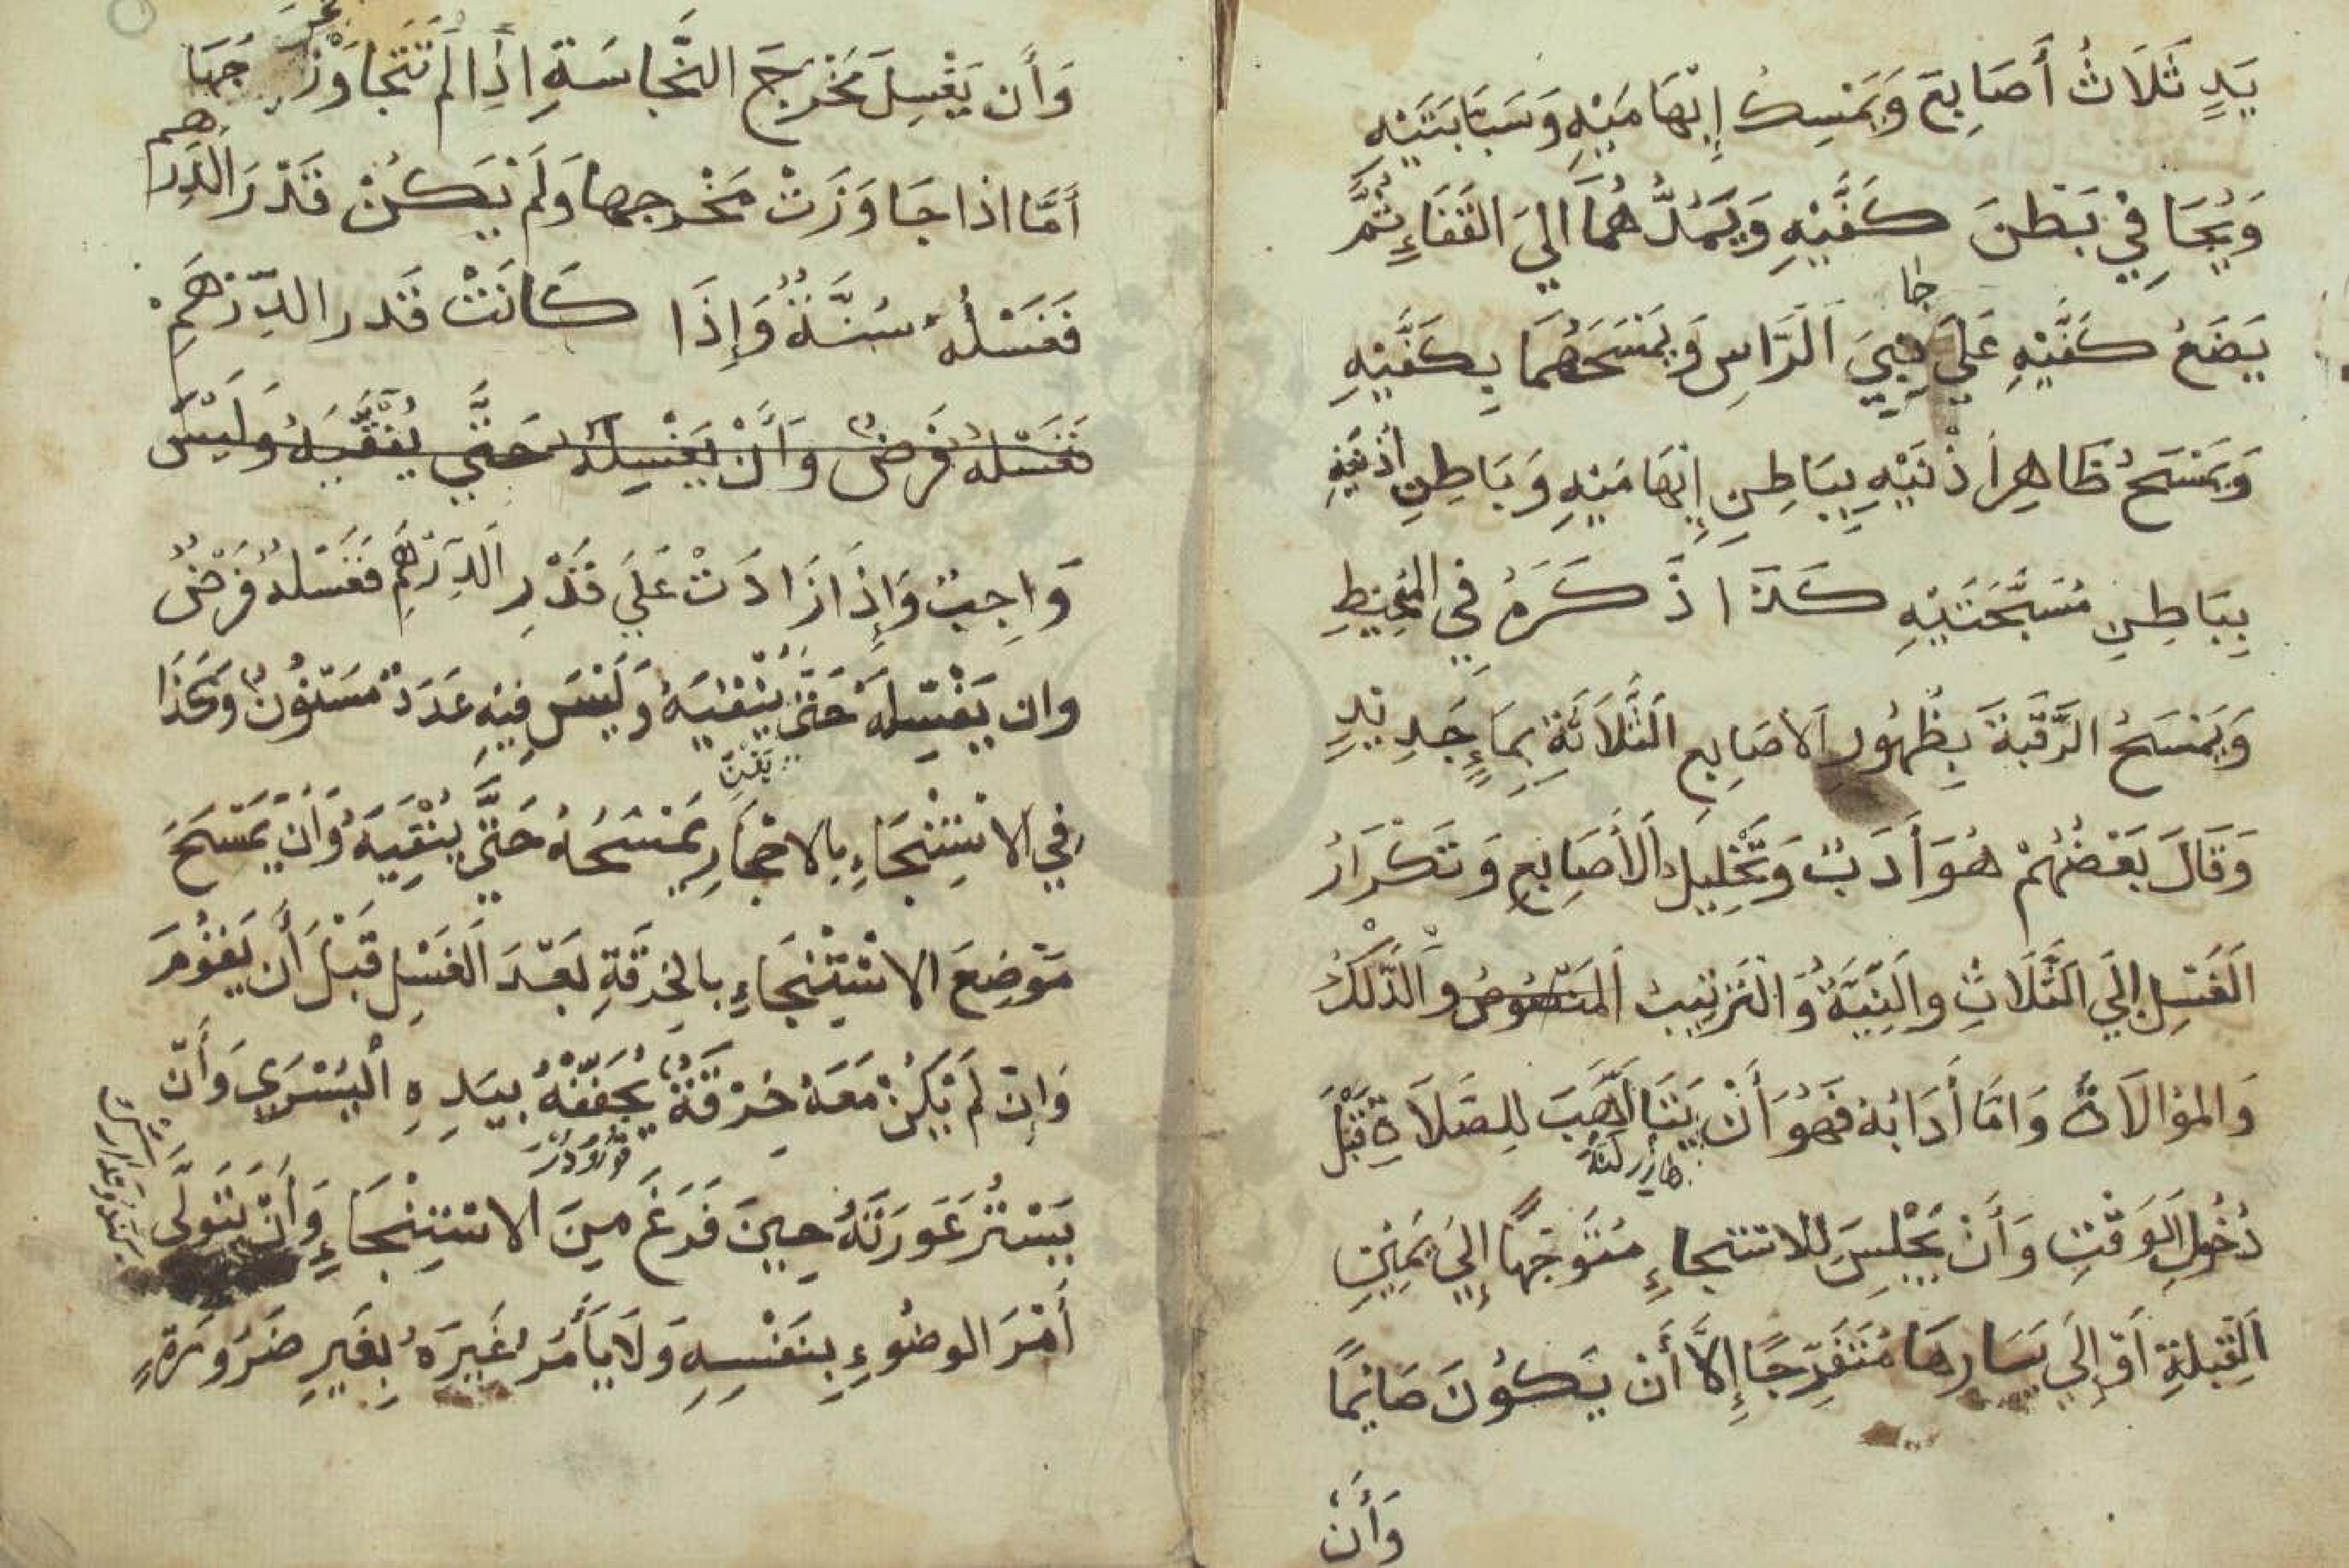 يَدٍ ثَلَاثُ أَصَابِعَ وَيَمْسِكُ إِبْهَامَيْهِ وَسَبَابَتَيْهِ
وَيُجَافِي بَطْنَ كَفَّيْهِ وَيَمُدُّهُمَا اِلَي القَفَاءِ ثُمَّ
يَضَعُ كَفَّيْهِ عَلَي جَانِبَيَ الرَّاسِ وَيَمْسَحُهُمَا بِكَفَّيْهِ
وَيَمْسَحُ ظَاهِرَ أُذْنَيْهِ بِبَاطِنِ إِبْهَامَيْهِ وَبَاطِنِ أُذْنَيْهِ
بِبَاطِنِ مُسَبِّحَتَيْهِ كَذَا ذَكَرَهُ فِي المُحِيْطِ
وَيَمْسَحُ الرَّقَبَةَ بِظُهُورِ الاَصَابِعِ الثَّلَاثَةِ بِمَاءٍ جَدِيْدٍ
وَقَالَ بَعْضُهُمْ هُوَ أَدَبٌ وَتَخْلِيلُ الأَصَابِعِ وَتَكْرَارُ
الغَسْلِ إِلَي الثَّلَاثِ وَالنِّيَّةُ وَالتَرْتِيبُ المَنْصُوصُ وَالدَّلْكُ
وَالموُالَاةُ وَامَّا أَدَابُهُ فَهُوَ أَنْ يَتَأَهَّبَ لِلصَّلَاةِ قَبْلَ
دُخُولِ الوَقْتِ وَأَنْ يَجْلِسَ لِلاستنجاءِ مُتَوَجِّهًا إِلَي يَمِيْنِ
القِبْلَةِ اَوْ إِلَي يَسَارِهَا مُتَفَرِّجًا إِلاَّ أَنْ يَكُوْنَ صَايِمًا
وَأَنْ
وَأَن يَغْسِلَ مَخْرَجَ النَّجَاسَةِ اِذَا لَمْ تَتَجَاوَزْ مَخْرَجَهَا
أَمَّا اذا جَاوَزَتْ مَخْرجها وَلَمْ يَكُنْ قَدْرَ الدِّرْهَمِ
فَغَسْلُهُ سُنَّةٌ وَإِذَا كَانَتْ قَدر الدِّرْهَمِ
فَغَسْلُهُ فَرضٌ وَأَنْ يَغْسِلَهُ حَتَّي يُنَقِّيَهُ وَلَيْسَ
وَاجِبٌ وَإِذَا زَادَتْ عَلَي قَدْرِ الدِّرْهَمِ فَغَسْلُهُ فَرْضٌ
وان يَغْسِلَهُ حَتَّي يُنْقِيَهُ وَلَيْسَ فِيْهِ عَدَدٌ مَسْنُوْنٌ وَكَذَا
فِي الاسْتِنْجَاءِ بِالاحْجَارِ يَمْسَحُهُ حَتَّي يُنْقِيَهُ وَأَنْ يَمْسَحَ
مَوْضِعَ الاسْتِنْجَاءِ بِالخِرْقَةِ بَعْدَ الغَسْلِ قَبْلَ أَنْ يَقُوْمَ
وَاِنْ لَمْ يَكُنْ مَعَهُ خِرْقَةٌ يُجَفِّفْهُ بِيَدِهِ اليُسْرَي وَأَنْ
يَسْتُرَ عَوْرَتَهُ حِيْنَ فَرَغَ مِنَ الاسْتِنْجَاءِ وَأَنْ يَتَوَلَّي
أَمْرَ الوضُوءِ بِنَفْسِهِ وَلَا يَأْمُرَ غَيْرَهُ بِغَيرِ ضَرُورَةٍ